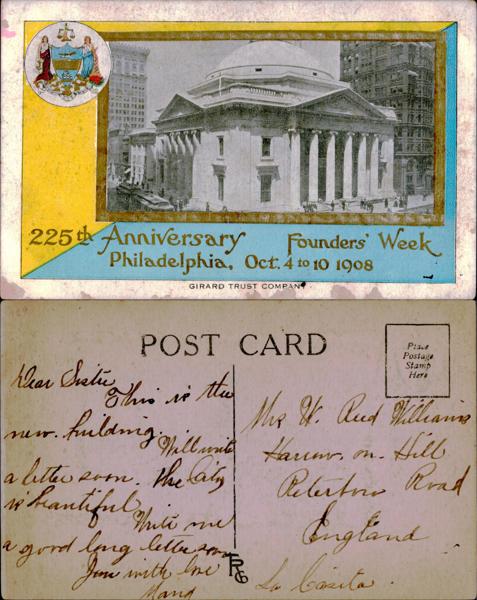 225th Anniversary Founders' Week
Philadelphia, Oct. 4 to 10 1908
GIRARD TRUST COMPANY
POST CARD
Place
Postage
Stamp
Here
Dear Sister
This is the
new building.
Will write
a letter soon. The City
is beautiful
Write me
a good long letter soon
with love
Mrs W. Reed Williams
Harrow. on. Hill
Peterboro Road
England
La Casita.